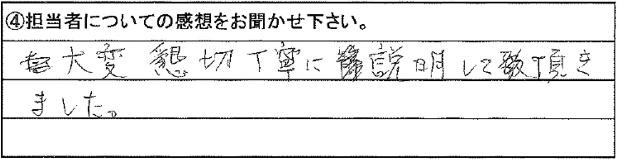 ④担当者についての感想をお聞かせ下さい。
大変 懇切丁寧に説明して頂き
ました。